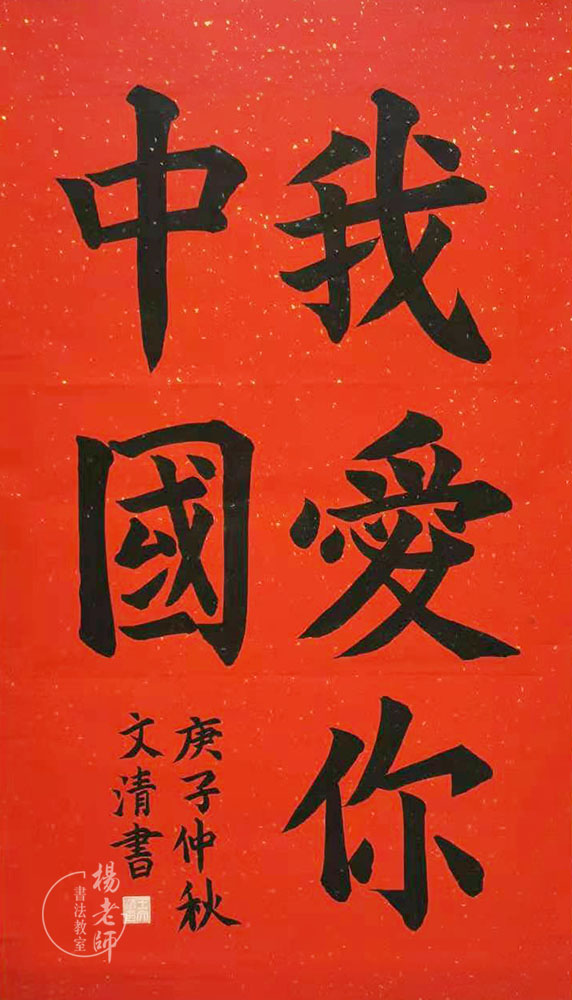 我愛你
中國
庚子仲秋
文清書
楊老師
書法教室